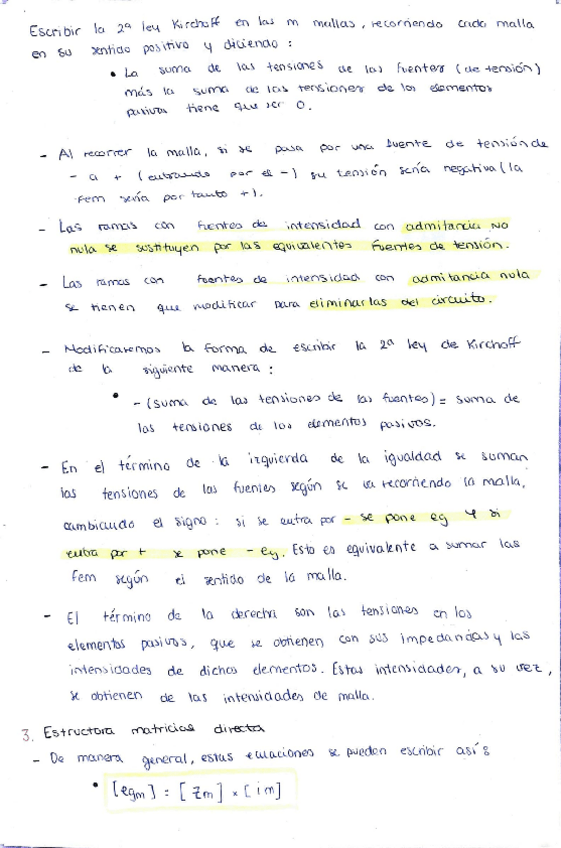 Escribir la 2ª ley Kirchoff en las m mallas, recorriendo cada malla
en su sentido positivo y diciendo:
• La suma de las tensiones de las fuentes (de tensión)
más la suma de las tensiones de los elementos
pasivos tiene que ser 0.
- Al recorrer la malla, si se pasa por una fuente de tensión de
- a + (entrando por el -) su tensión sería negativa (la
fem sería por tanto +).
- Las ramas con fuentes de intensidad con admitancia NO
nula se sustituyen por las equivalentes fuentes de tensión.
- Las ramas con fuentes de intensidad con admitancia nula
se tienen que modificar para eliminarlas del circuito.
- Modificaremos la forma de escribir la 2ª ley de Kirchoff
de la siguiente manera:
• - (suma de las tensiones de las fuentes) = suma de
las tensiones de los elementos pasivos.
- En el término de la izquierda de la igualdad se suman
las tensiones de las fuentes según se va recorriendo la malla,
cambiando el signo: si se entra por - se pone eg y si
entra por + se pone - eg. Esto es equivalente a sumar las
fem según el sentido de la malla.
- El término de la derecha son las tensiones en los
elementos pasivos, que se obtienen con sus impedancias y las
intensidades de dichos elementos. Estas intensidades, a su vez,
se obtienen de las intensidades de malla.
3. Estructora matricias directa
- De manera general, estas ecuaciones se pueden escribir así:
• [egm] = [Zm] × [im]